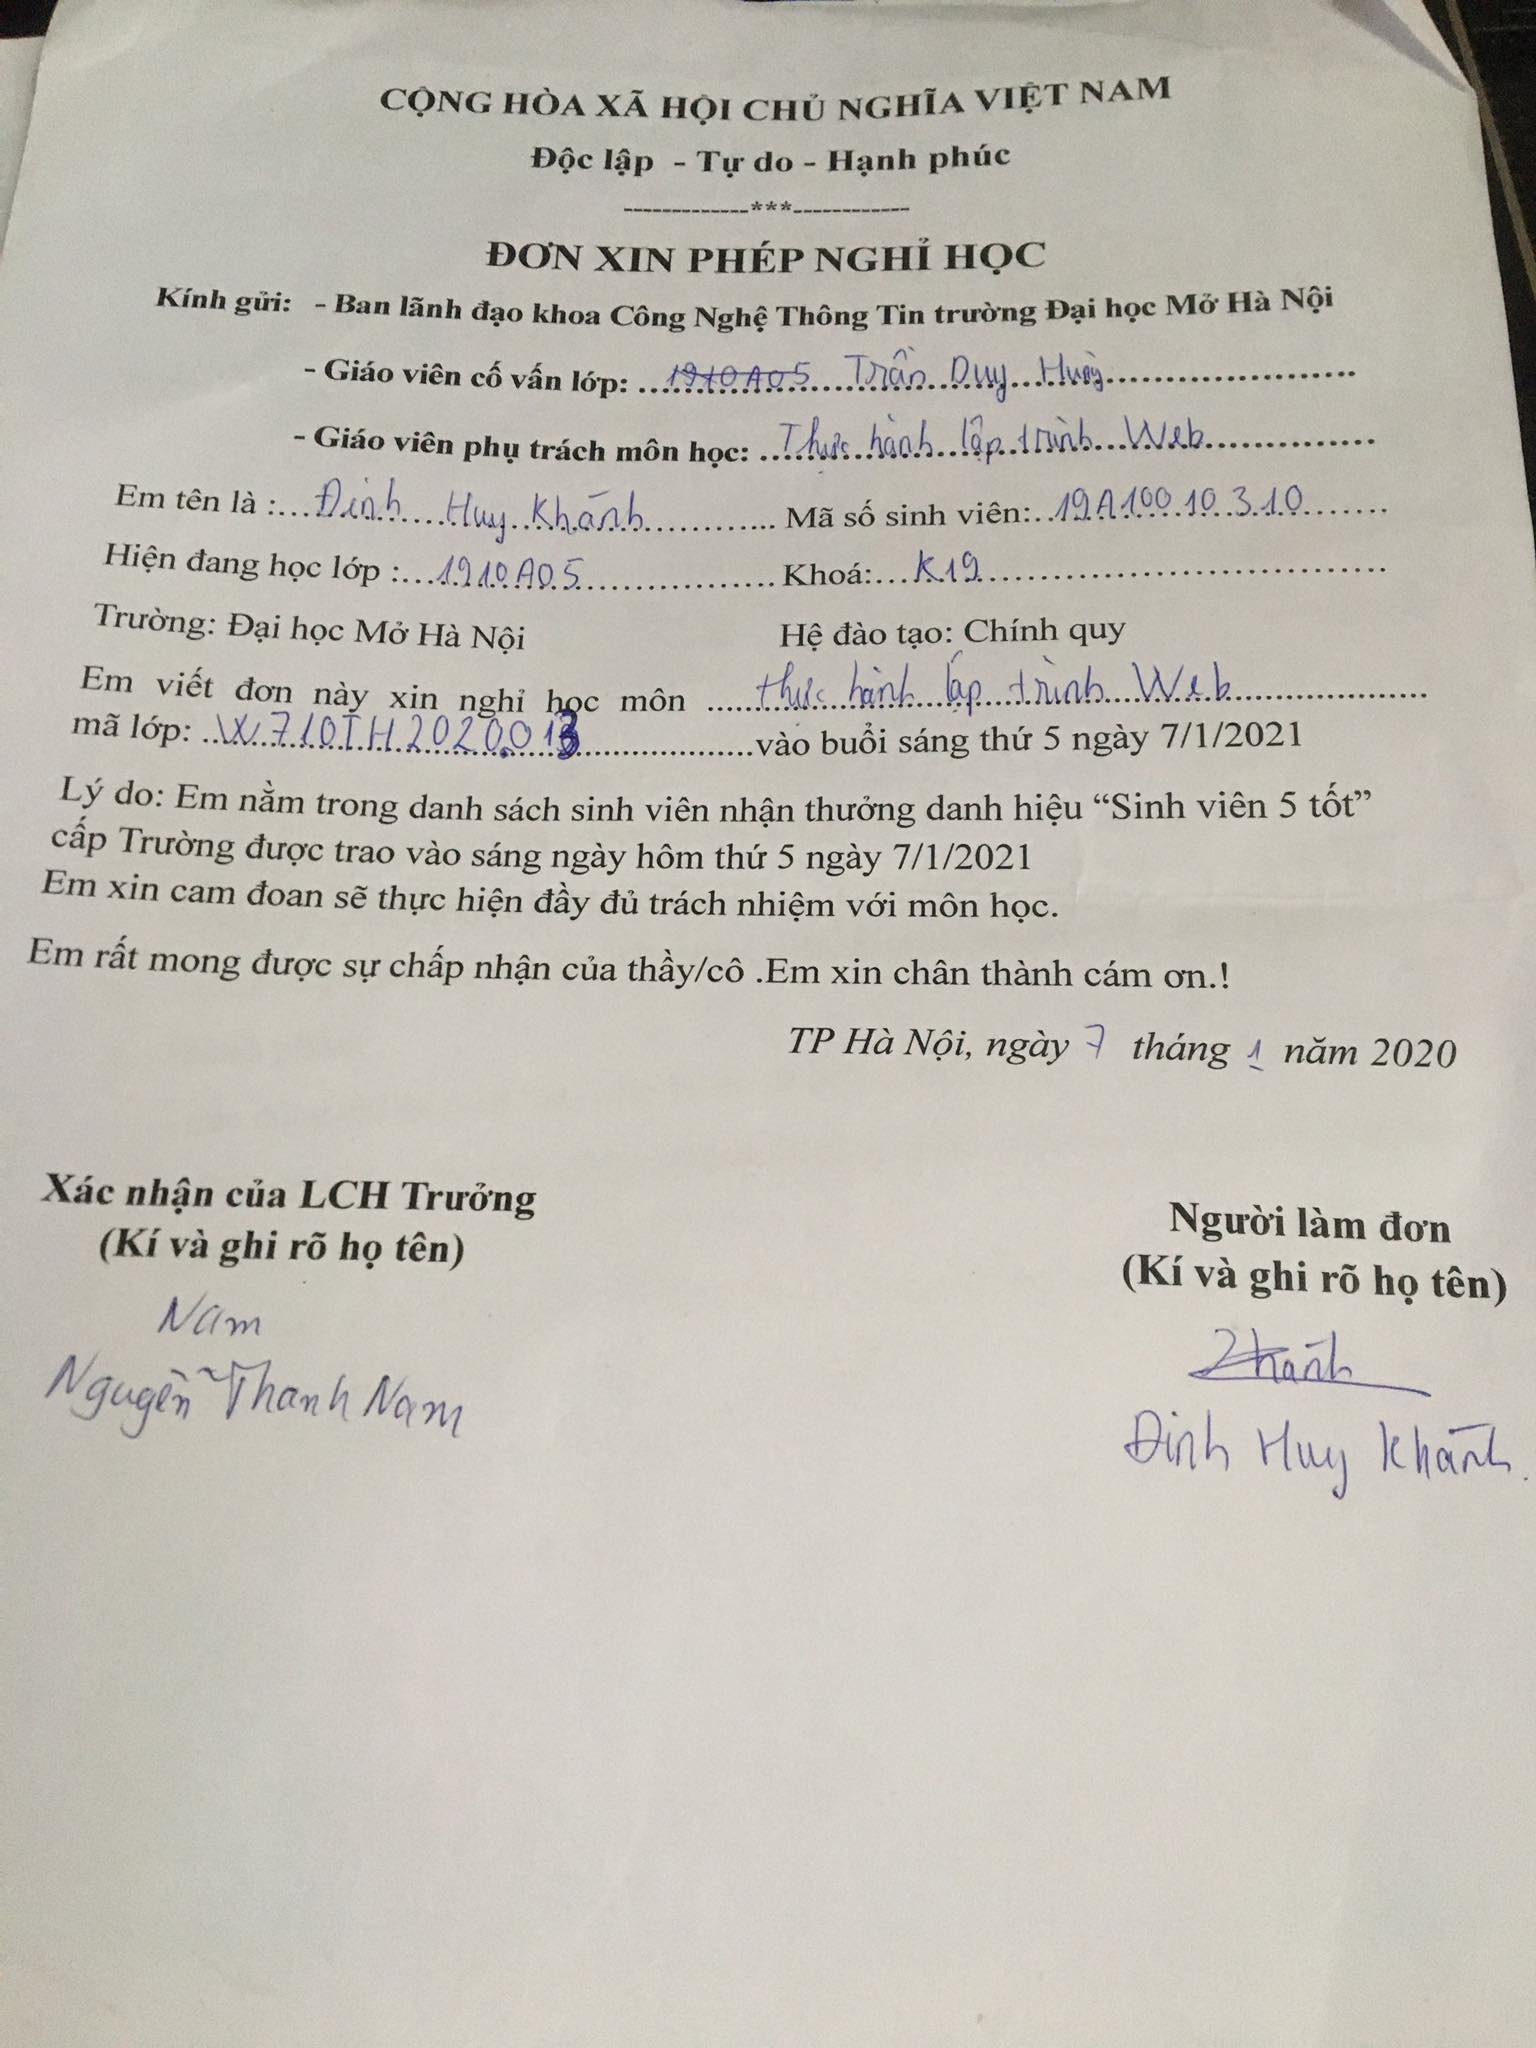 CỘNG HÒA XÃ HỘI CHỦ NGHĨA VIỆT NAM
Độc lập - Tự do - Hạnh phúc
-------------***------------
ĐƠN XIN PHÉP NGHỈ HỌC
Kính gửi: - Ban lãnh đạo khoa Công Nghệ Thông Tin trường Đại học Mở Hà Nội
- Giáo viên cố vấn lớp: 1910A05 Trần Duy Hùng
- Giáo viên phụ trách môn học: Thực hành lập trình Web
Em tên là : Đinh Huy Khánh Mã số sinh viên: 19A10010310
Hiện đang học lớp : 1910A05 Khoá: K19
Trường: Đại học Mở Hà Nội Hệ đào tạo: Chính quy
Em viết đơn này xin nghỉ học môn thực hành lập trình Web
mã lớp: W710TH2020.013 vào buổi sáng thứ 5 ngày 7/1/2021
Lý do: Em nằm trong danh sách sinh viên nhận thưởng danh hiệu “Sinh viên 5 tốt”
cấp Trường được trao vào sáng ngày hôm thứ 5 ngày 7/1/2021
Em xin cam đoan sẽ thực hiện đầy đủ trách nhiệm với môn học.
Em rất mong được sự chấp nhận của thầy/cô .Em xin chân thành cám ơn.!
TP Hà Nội, ngày 7 tháng 1 năm 2020
Xác nhận của LCH Trưởng
(Kí và ghi rõ họ tên)
Nam
Nguyễn Thanh Nam
Người làm đơn
(Kí và ghi rõ họ tên)
Khánh
Đinh Huy Khánh.